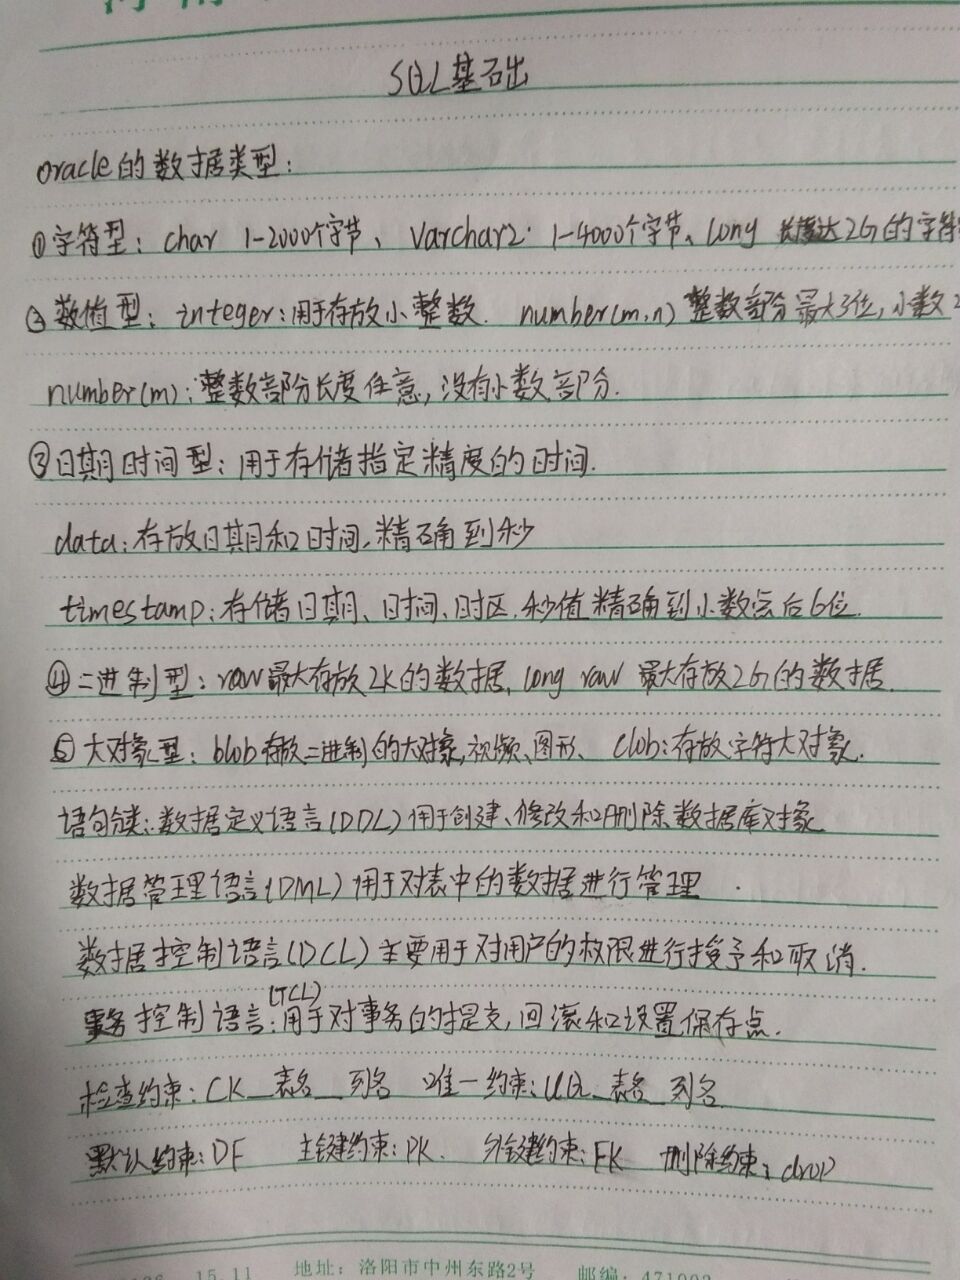 SQL基础
oracle的数据类型：
①字符型：char 1-2000个字节、varchar2 1-4000个字节、long 长度达2G的字符
②数值型：integer：用于存放小整数. number(m,n) 整数部分最大3位，小数2
number(m)：整数部分长度任意，没有小数部分.
③日期时间型：用于存储指定精度的时间.
data：存放日期和时间，精确到秒
timestamp：存储日期、时间、时区，秒值精确到小数点后6位.
④二进制型：raw最大存放2K的数据，long raw 最大存放2G的数据.
⑤大对象型：blob存放二进制的大对象，视频、图形、clob：存放字符大对象.
语句分类：数据定义语言(DDL)用于创建、修改和删除数据库对象
数据管理语言(DML)用于对表中的数据进行管理
数据控制语言(DCL)主要用于对用户的权限进行授予和取消.
事务控制语言(TCL)：用于对事务的提交，回滚和设置保存点.
检查约束：CK_表名_列名 唯一约束：UQ_表名_列名
默认约束：DF 主键约束：PK. 外键约束：FK 删除约束：drop
15.11 地址：洛阳市中州东路2号 邮编：471002